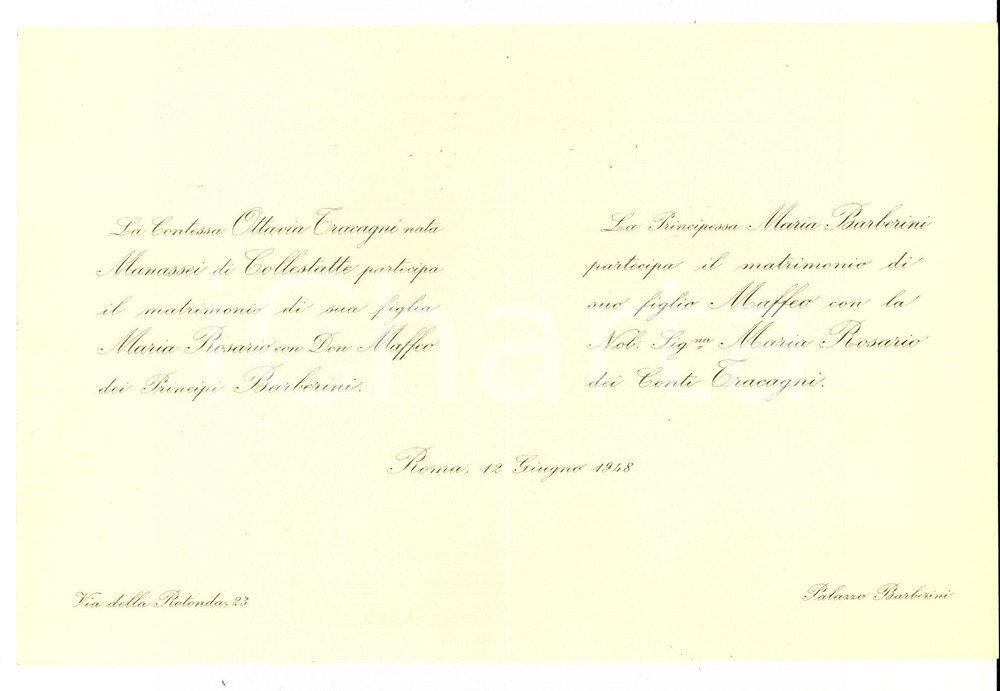 La Contessa Ottavia Tracagni nata
Manassei di Collestatte participa
il matrimonio di sua figlia
Maria Rosario con Don Maffeo
dei Principi Barberini.
La Principessa Maria Barberini
partecipa il matrimonio di
suo figlio Maffeo con la
Nob. Sig.na Maria Rosario
dei Conti Tracagni.
Roma, 12 Giugno 1948
Via della Rotonda, 23
Palazzo Barberini
iCharta